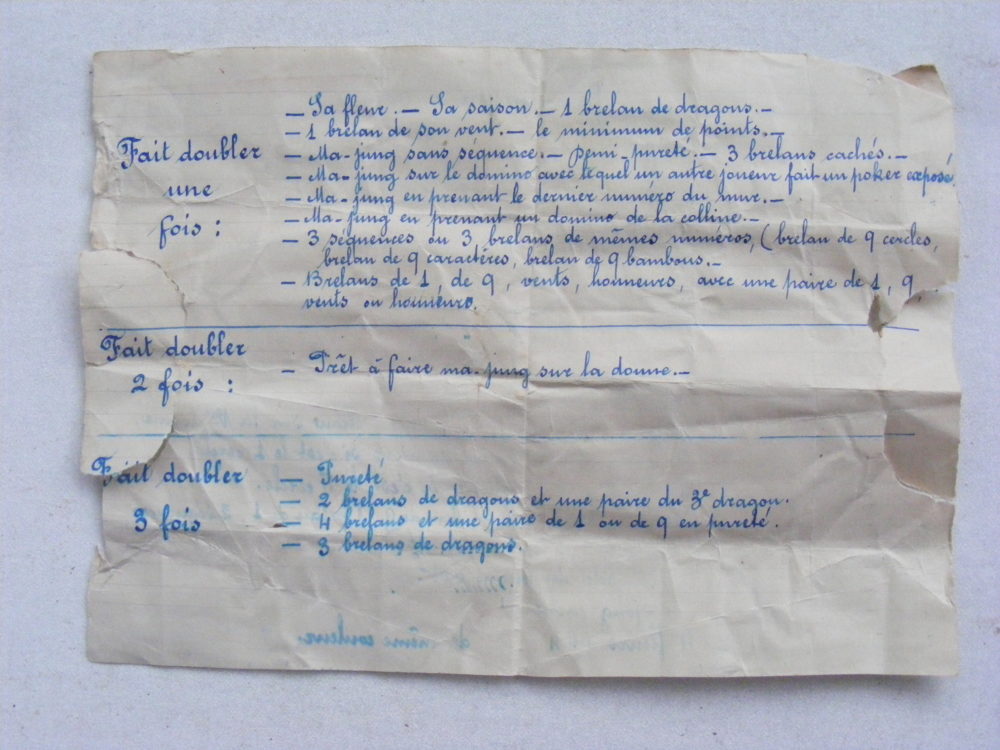 — Sa fleur. — Sa saison. — 1 brelan de dragons. —
— 1 brelan de son vent. — le minimum de points. —
Fait doubler — Ma-jung sans séquence. — Demi-pureté. — 3 brelans cachés. —
— Ma-jung sur le domino avec lequel un autre joueur fait un poker exposé.
une — Ma-jung en prenant le dernier numéro du mur. —
— Ma-jung en prenant un domino de la colline. —
fois : — 3 séquences ou 3 brelans de mêmes numéros, (brelan de 9 cercles,
brelan de 9 caractères, brelan de 9 bambous. —
— Brelans de 1, de 9, vents, honneurs, avec une paire de 1, 9,
vents ou honneurs.
Fait doubler
— Prêt à faire ma-jung sur la donne. —
2 fois :
Fait doubler — Pureté
— 2 brelans de dragons et une paire du 3e dragon.
3 fois — 4 brelans et une paire de 1 ou de 9 en pureté.
— 3 brelans de dragons.
de même couleur